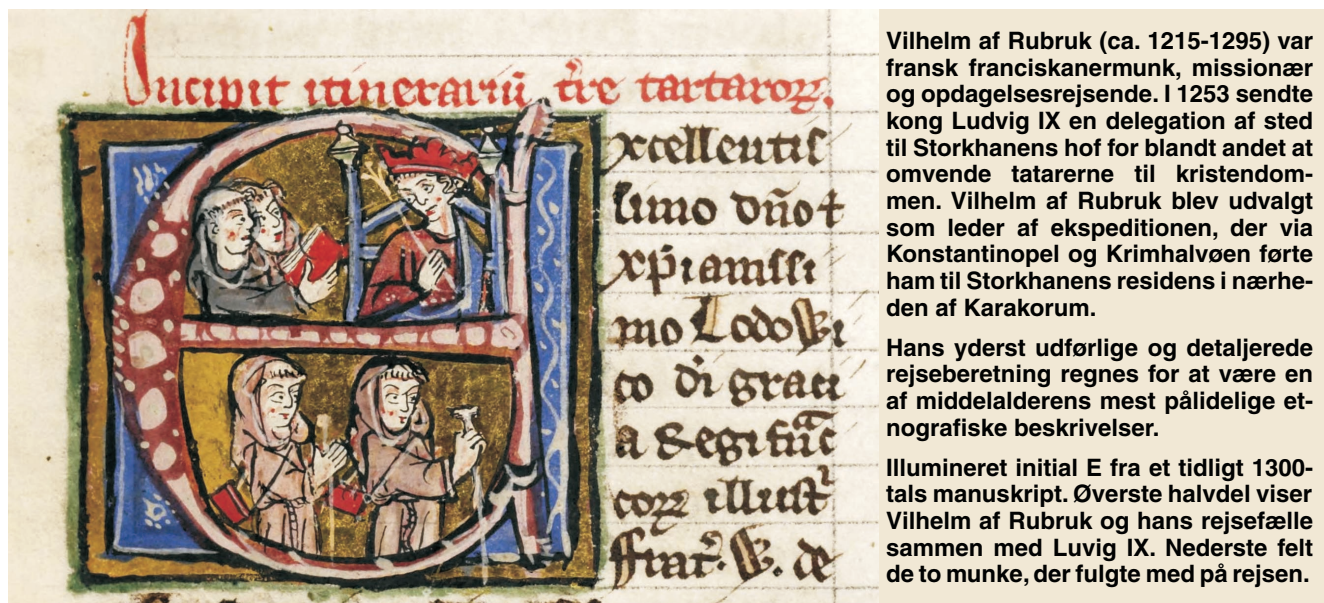 Incipit itinerariū t̄re tartaroꝝ.
xcellentis
simo dn̄o ⁊
xp̄ianissi
mo Lodowi
co di ̄graci
a Regi
coꝝ illust
ffrat̄. W. de
Vilhelm af Rubruk (ca. 1215-1295) var
fransk franciskanermunk, missionær
og opdagelsesrejsende. I 1253 sendte
kong Ludvig IX en delegation af sted
til Storkhanens hof for blandt andet at
omvende tatarerne til kristendom-
men. Vilhelm af Rubruk blev udvalgt
som leder af ekspeditionen, der via
Konstantinopel og Krimhalvøen førte
ham til Storkhanens residens i nærhe-
den af Karakorum.
Hans yderst udførlige og detaljerede
rejseberetning regnes for at være en
af middelalderens mest pålidelige et-
nografiske beskrivelser.
Illumineret initial E fra et tidligt 1300-
tals manuskript. Øverste halvdel viser
Vilhelm af Rubruk og hans rejsefælle
sammen med Luvig IX. Nederste felt
de to munke, der fulgte med på rejsen.